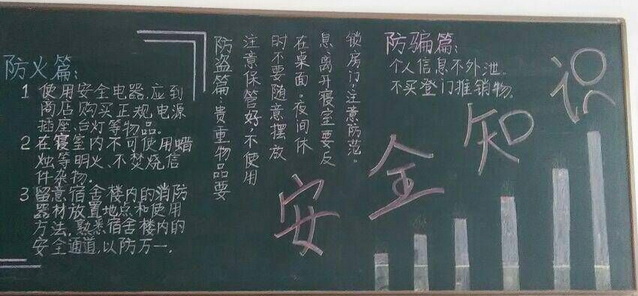 防火篇:
1 使用安全电器,应到
商店购买正规电源
插座、台灯等物品.
2 在寝室内不可使用蜡
烛等明火、不焚烧信
件杂物.
3 留意宿舍楼内的消防
器材放置地点和使用
方法.熟悉宿舍楼内的
安全通道,以防万一.
防盗篇:贵重物品要
注意保管好,不使用
时不要随意摆放
在桌面.夜间休
息,离开寝室要反
锁房门,注意防范。
防骗篇:
个人信息不外泄.
不买登门推销物.
安全知识